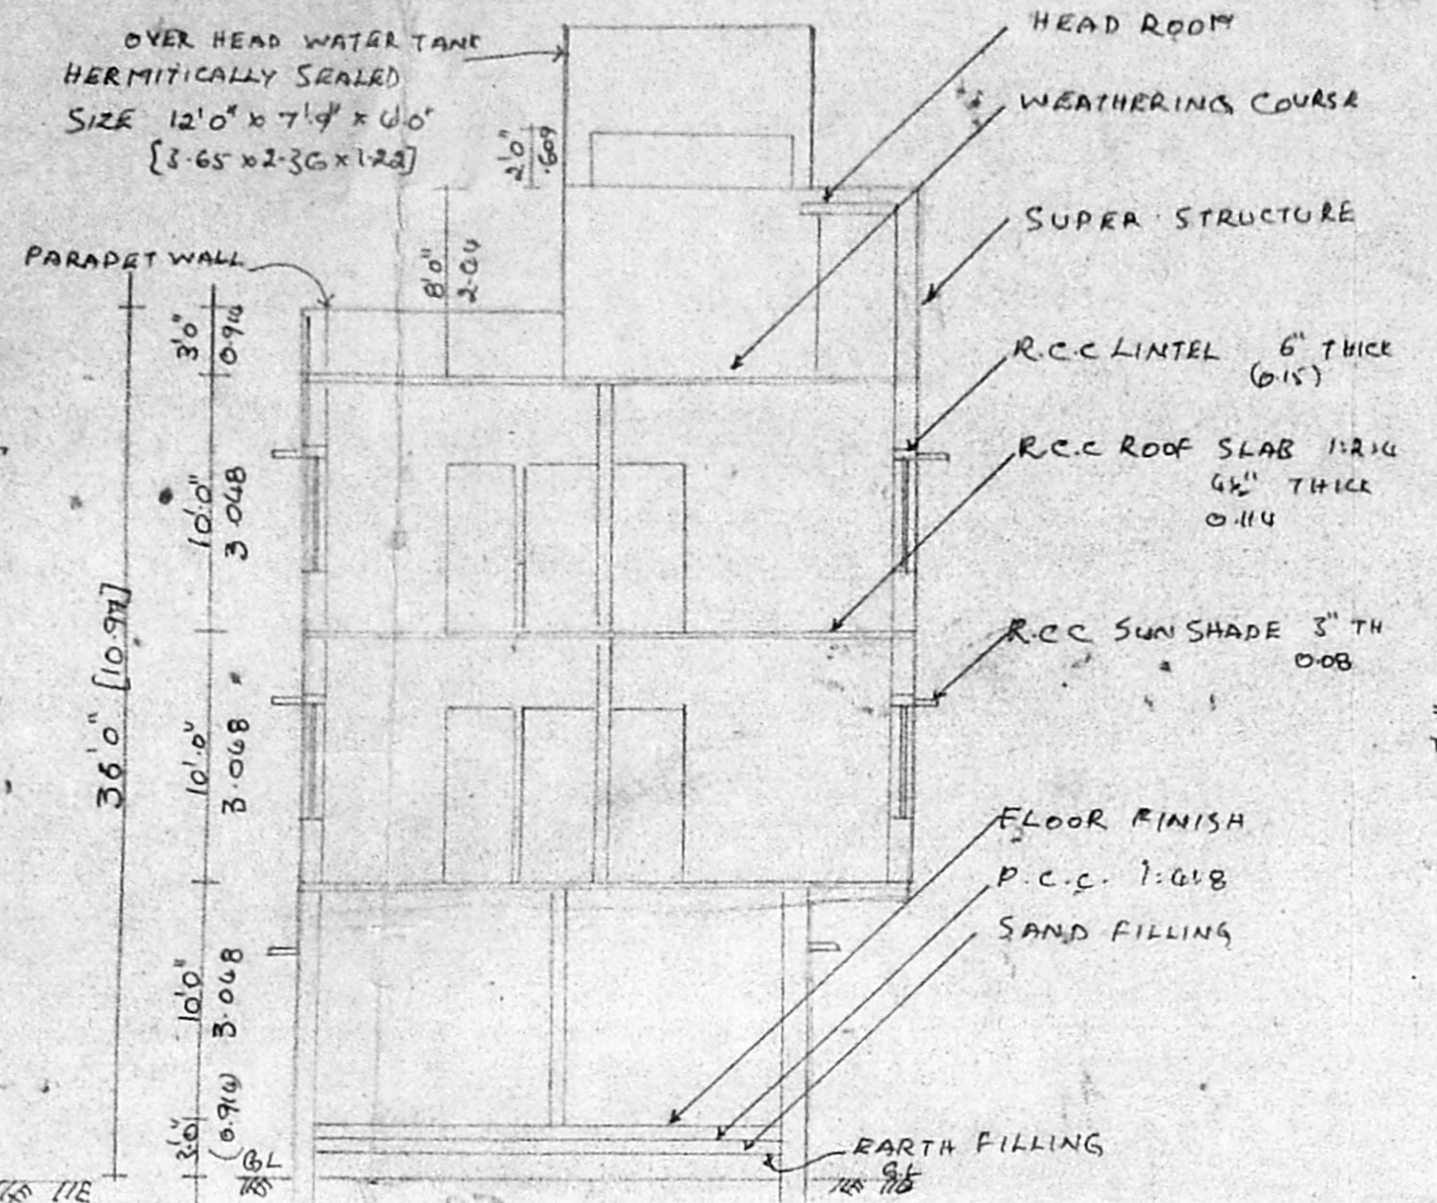 OVER HEAD WATER TANK
HERMITICALLY SEALED
SIZE 12'0" x 7'9" x 4'0"
[3.65 x 2.36 x 1.22]
2'0"
.609
8'0"
2.44
PARAPET WALL
3'0"
0.914
10'0"
3.048
36'0" [10.97]
10'0"
3.048
10'0"
3.048
(0.914)
G.L
HEAD ROOM
WEATHERING COURSE
SUPER STRUCTURE
R.C.C LINTEL 6" THICK
(0.15)
R.C.C ROOF SLAB 1:2:4
4½" THICK
0.114
R.C.C SUN SHADE 3" TH
0.08
FLOOR FINISH
P.C.C. 1:4:8
SAND FILLING
EARTH FILLING
G.L